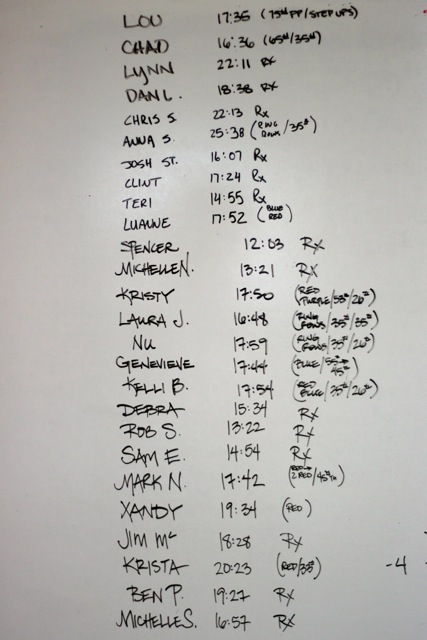 LOU 17:35 (75# PP/STEP UPS)
CHAD 16:36 (65#/35#)
LYNN 22:11 RX
DAN L. 18:38 RX
CHRIS S. 22:13 Rx
ANNA S. 25:38 (RING ROWS/35#)
JOSH ST. 16:07 Rx
CLINT 17:24 Rx
TERI 14:55 Rx
LUANNE 17:52 (BLUE RED)
SPENCER 12:03 Rx
MICHELLE N. 13:21 Rx
KRISTY 17:50 (RED PURPLE/55#/26#)
LAURA J. 16:48 (RING ROWS/35#/35#)
NU 17:59 (RING ROWS/35#/26#)
GENEVIEVE 17:44 (BLUE/55# 45#)
KELLI B. 17:54 (RED BLUE/35#/26#)
DEBRA 15:34 Rx
ROB S. 13:22 Rx
SAM E. 14:54 Rx
MARK N. 17:42 (2 RED/45#)
XANDY 19:34 (RED)
JIM Mc 18:28 Rx
KRISTA 20:23 (RED/35#) -4
BEN P. 19:27 Rx
MICHELLE S. 16:57 Rx